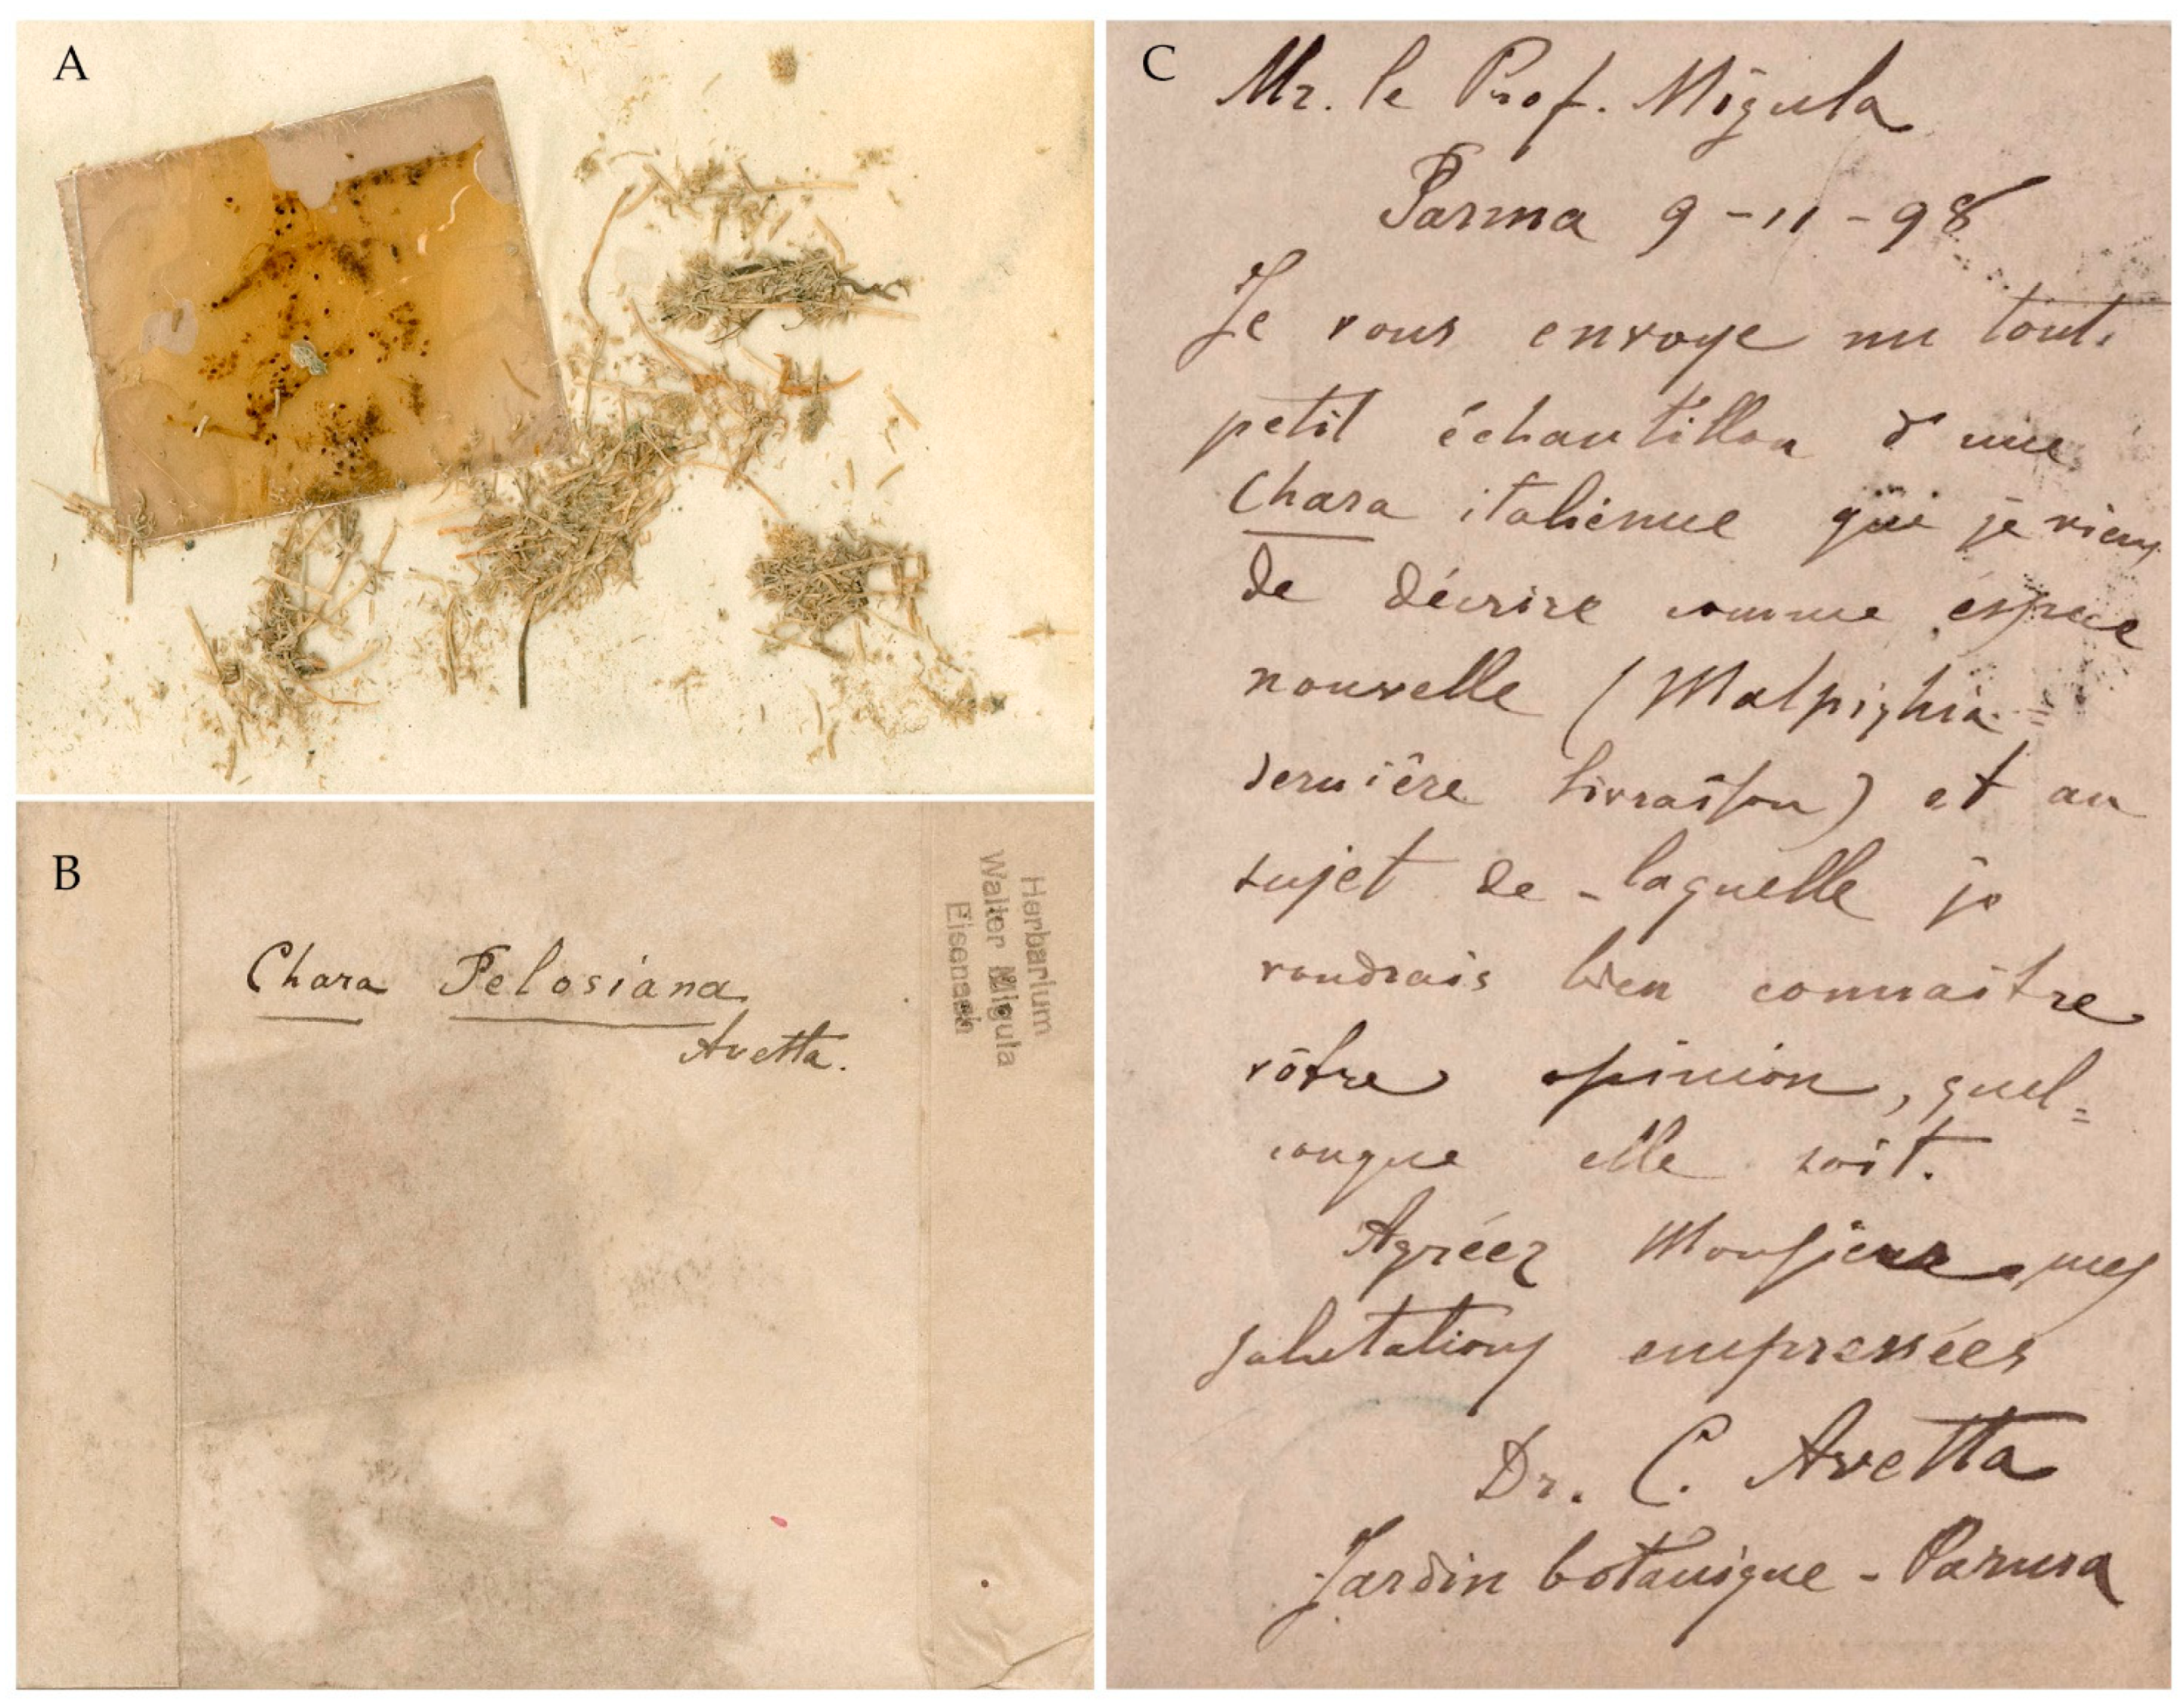 A
B
Chara Pelosiana
Avetta.
Herbarium
Walter Migula
Eisenach
C
Mr. le Prof. Migula
Parma 9-11-98
Je vous envoye un tout
petit échantillon d'une
Chara italienne que je viens
de décrire comme éspece
nouvelle (Malpighia
dernière livraison) et au
sujet de-laquelle je
voudrais bien connaitre
vôtre opinion, quel=
conque elle soit.
Agréez Monsieur, mes
salutations empressées
Dr. C. Avetta
Jardin botanique - Parma